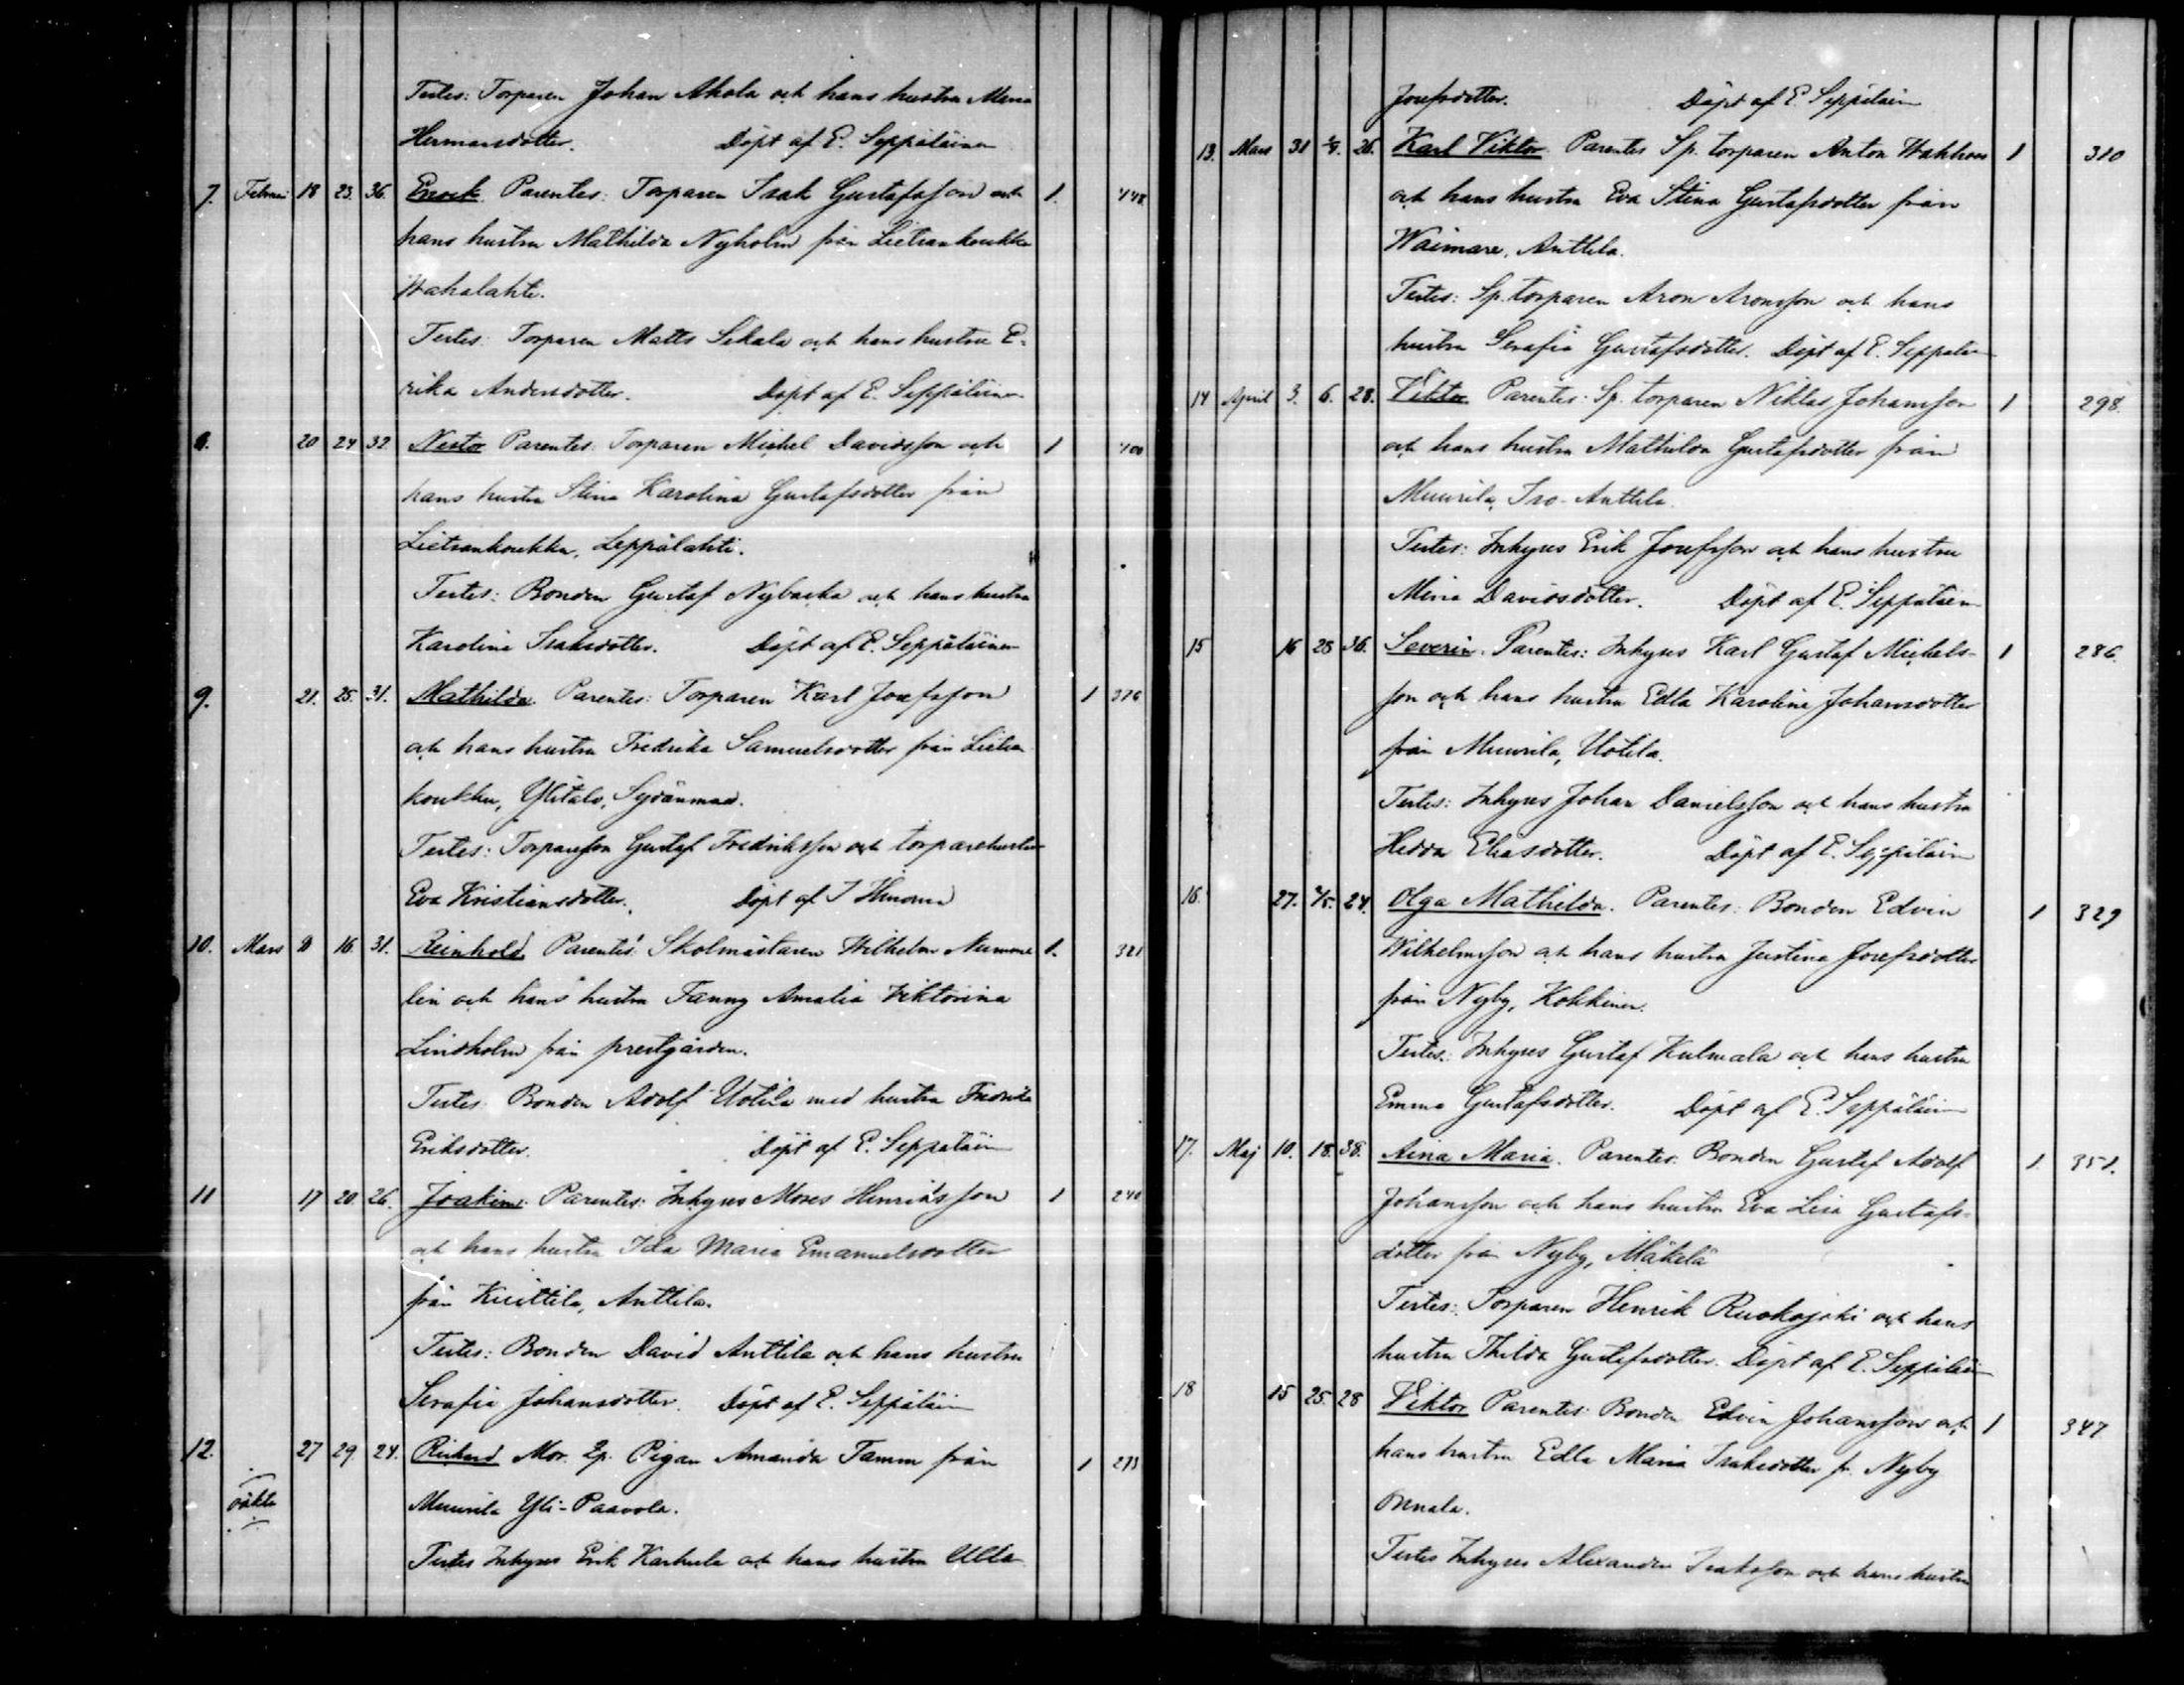 Testes: Torparen Johan Ahola och hans hustru Maria
Hermansdotter. Döpt af E. Seppäläinen
7. Februari 18 23. 36. Enock. Parentes: Torparen Isak Gustafsson och 1. 448
hans hustru Mathilda Nyholm från Lietsankoukku
Wahalahti.
Testes: Torparen Matts Sikala och hans hustru E-
rika Andersdotter. Döpt af E. Seppäläinen
8. 20 24 32 Nestor Parentes: Torparen Mickel Davidsson och 1 400
hans hustru Stina Karolina Gustafsdotter från
Lietsankoukku, Leppälahti.
Testes: Bonden Gustaf Nybacka och hans hustru
Karolina Isaksdotter. Döpt af E. Seppäläinen
9. 21. 25. 31. Mathilda. Parentes: Torparen Karl Josefsson 1 316
och hans hustru Fredrika Samuelsdotter från Lietsan
koukku, Ylitalo, Sydänmaa.
Testes: Torpareson Gustaf Fredriksson och torparehustru
Eva Kristiansdotter. Döpt af J
10. Mars 8 16. 31. Reinhold. Parentes: Skolmästaren Wilhelm Numme 1. 321
lin och hans hustru Fanny Amalia Viktorina
Lindholm från prestgården.
Testes: Bonden Adolf Uotila med hustru Fredrika
Eriksdotter. Döpt af E. Seppäläin
11 17 20. 26. Joakim. Parentes: Inhyses Moses Henriksson 1 240
och hans hustru Ida Maria Emanuelsdotter
från Kuittila, Anttila.
Testes: Bonden David Anttila och hans hustru
Serafia Johansdotter. Döpt af E. Seppäläin
12. 27 29. 24. Richard Mor. Ep. Pigan Amanda Tamm från 1 273
oäkta Muurila Yli-Paavola.
Testes Inhyses Erik Karhula och hans hustru Ulla
Josefsdotter. Döpt af E. Seppäläin
13. Mars 31 26. Karl Viktor. Parentes Sp. torparen Anton 1 310
och hans hustru Eva Stina Gustafsdotter från
Waimare, Anttila.
Testes: Sp. torparen Aron Aronsson och hans
hustru Serafia Gustafsdotter. Döpt af E. Seppäläin
14 April 3. 6. 28. Viktor. Parentes: Sp. torparen Niklas Johansson 1 298.
och hans hustru Mathilda Gustafsdotter från
Muurila, Iso-Anttila.
Testes: Inhyses Erik Josefsson och hans hustru
Mina Davidsdotter. Döpt af E. Seppäläin
15 16 28 36. Severin. Parentes: Inhyses Karl Gustaf Mickels- 1 286.
son och hans hustru Edla Karolina Johansdotter
från Muurila, Uotila.
Testes: Inhyses Johan Danielsson och hans hustru
Hedda Eliasdotter. Döpt af E. Seppäläin
16. 27. 24. Olga Mathilda. Parentes: Bonden Edvin 1 329
Wilhelmsson och hans hustru Justina Josefsdotter
från Nyby, Kokkinen.
Testes: Inhyses Gustaf Kulmala och hans hustru
Emma Gustafsdotter. Döpt af E. Seppäläin
17. Maj 10. 18. 38. Aina Maria. Parentes: Bonden Gustaf Adolf 1. 351.
Johansson och hans hustru Eva Lisa Gustafs-
dotter från Nyby, Mäkelä
Testes: Torparen Henrik Ruokojoki och hans
hustru Thilda Gustafsdotter. Döpt af E. Seppäläin
18 15 25. 28 Viktor Parentes: Bonden Edvin Johansson och 1 347
hans hustru Edla Maria Isaksdotter fr. Nyby
Onnala.
Testes Inhyses Alexander Isaksson och hans hustru